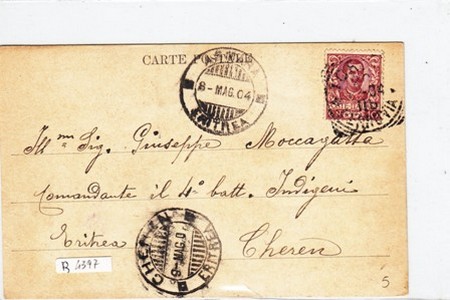 CARTE POSTALE
ASMARA
8-MAG.04
ERITREA
Ill.mo Sig. Giuseppe Moccagatta
Comandante il 4° batt. Indigeni
Eritrea
Cheren
CHEREN
9-MAG.0
ERITREA
B 4397
5